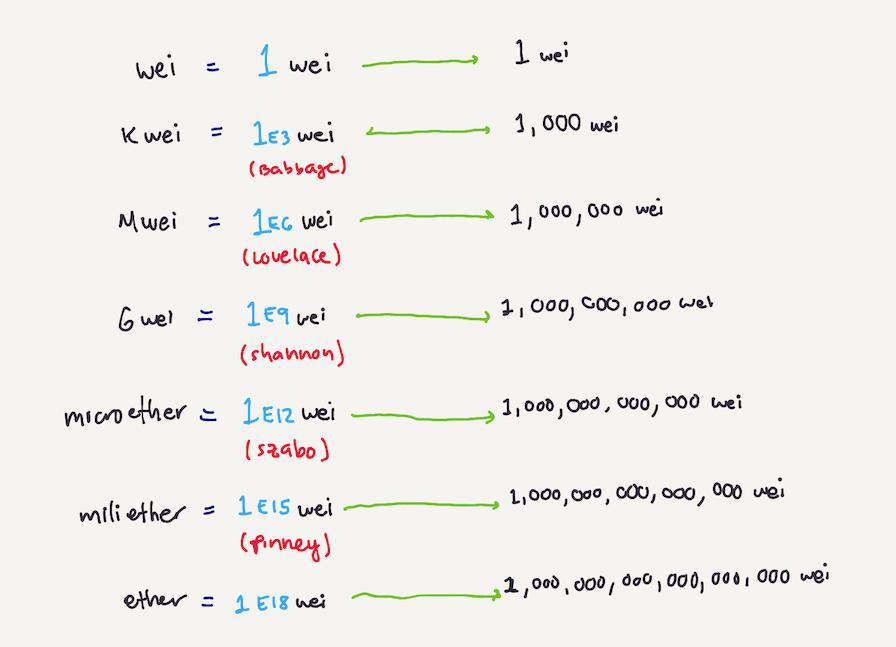 wei = 1 wei → 1 wei
Kwei = 1E3 wei ↔ 1,000 wei
(Babbage)
Mwei = 1E6 wei → 1,000,000 wei
(Lovelace)
Gwei = 1E9 wei → 1,000,000,000 wei
(shannon)
microether = 1E12 wei → 1,000,000,000,000 wei
(szabo)
milliether = 1E15 wei → 1,000,000,000,000,000 wei
(finney)
ether = 1E18 wei → 1,000,000,000,000,000,000 wei